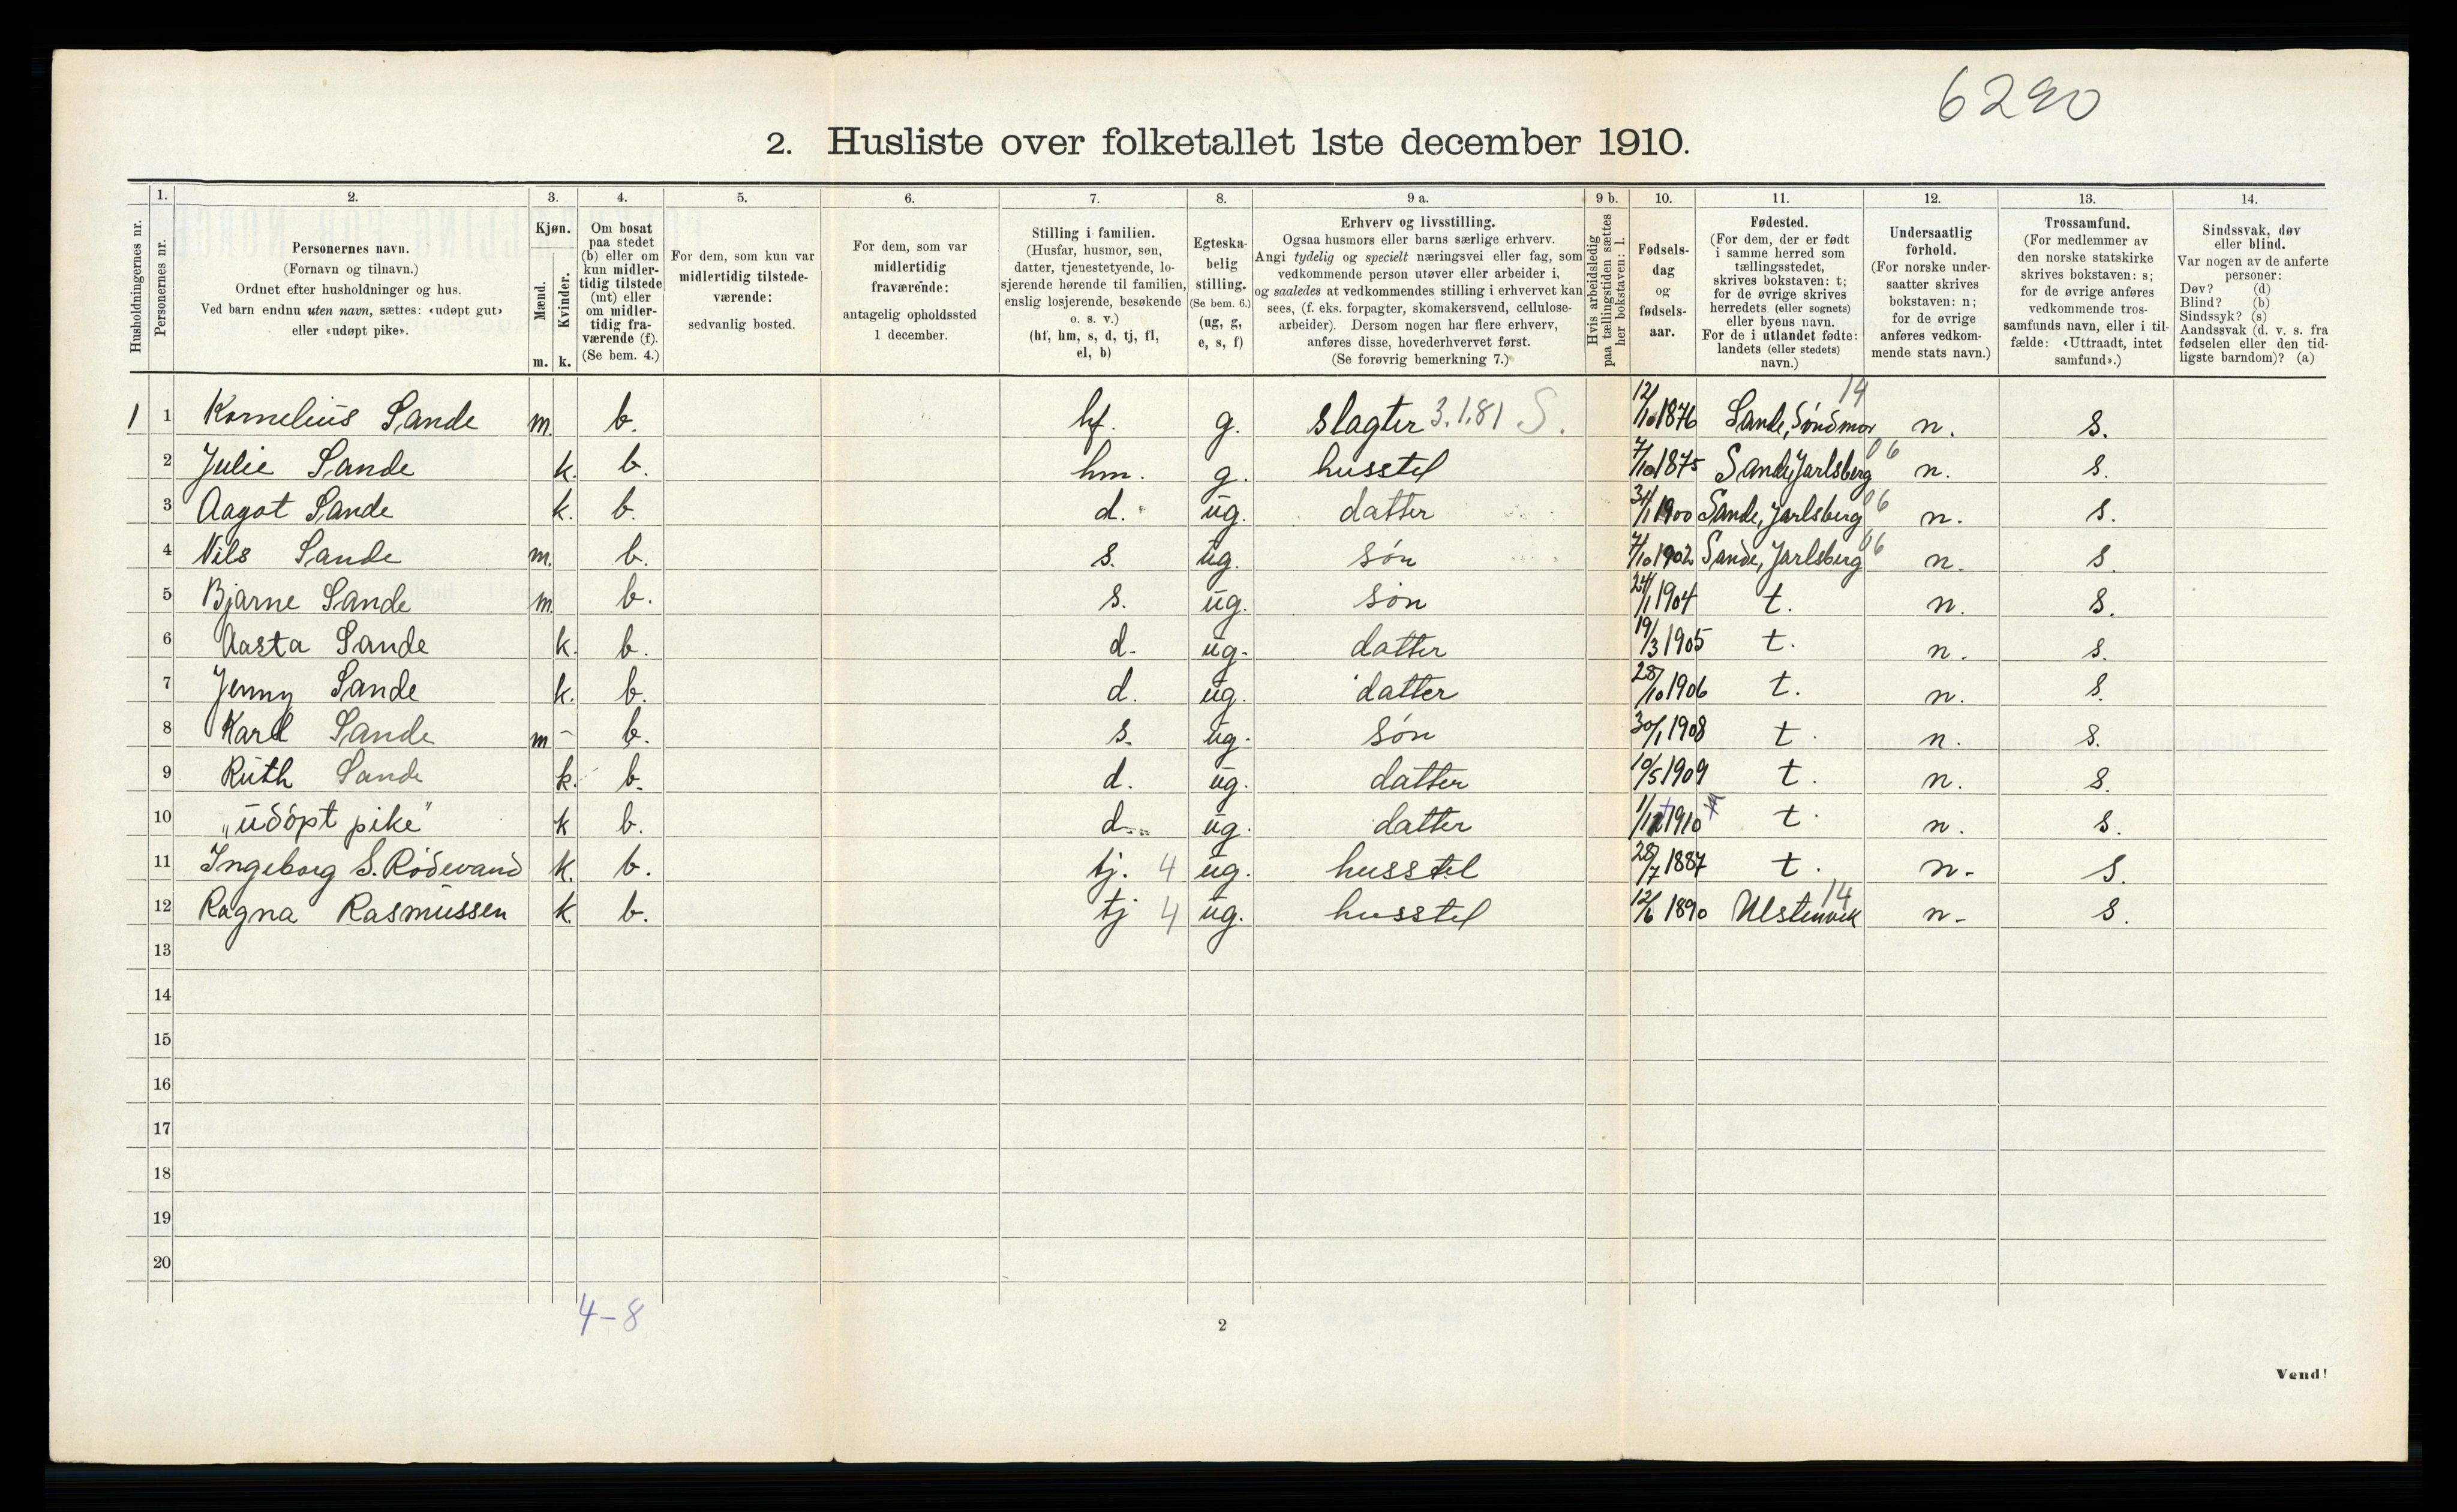 6290
2. Husliste over folketallet 1ste december 1910.
Husholdningernes nr.
1.
Personernes nr.
2.
Personernes navn.
(Fornavn og tilnavn.)
Ordnet efter husholdninger og hus.
Ved barn endnu uten navn, sættes: «udøpt gut»
eller «udøpt pike».
3.
Kjøn.
Mænd.
Kvinder.
m. k.
4.
Om bosat
paa stedet
(b) eller om
kun midler-
tidig tilstede
(mt) eller
om midler-
tidig fra-
værende (f).
(Se bem. 4.)
5.
For dem, som kun var
midlertidig tilstede-
værende:
sedvanlig bosted.
6.
For dem, som var
midlertidig
fraværende:
antagelig opholdssted
1 december.
7.
Stilling i familien.
(Husfar, husmor, søn,
datter, tjenestetyende, lo-
sjerende hørende til familien,
enslig losjerende, besøkende
o. s. v.)
(hf, hm, s, d, tj, fl,
el, b)
8.
Egteska-
belig
stilling.
(Se bem. 6.)
(ug, g,
e, s, f)
9 a.
Erhverv og livsstilling.
Ogsaa husmors eller barns særlige erhverv.
Angi tydelig og specielt næringsvei eller fag, som
vedkommende person utøver eller arbeider i,
og saaledes at vedkommendes stilling i erhvervet kan
sees, (f. eks. forpagter, skomakersvend, cellulose-
arbeider). Dersom nogen har flere erhverv,
anføres disse, hovederhvervet først.
(Se forøvrig bemerkning 7.)
9 b.
Hvis arbeidsledig
paa tællingstiden sættes
her bokstaven: l.
10.
Fødsels-
dag
og
fødsels-
aar.
11.
Fødested.
(For dem, der er født
i samme herred som
tællingsstedet,
skrives bokstaven: t;
for de øvrige skrives
herredets (eller sognets)
eller byens navn.
For de i utlandet fødte:
landets (eller stedets)
navn.)
12.
Undersaatlig
forhold.
(For norske under-
saatter skrives
bokstaven: n;
for de øvrige
anføres vedkom-
mende stats navn.)
13.
Trossamfund.
(For medlemmer av
den norske statskirke
skrives bokstaven: s;
for de øvrige anføres
vedkommende tros-
samfunds navn, eller i til-
fælde: «Uttraadt, intet
samfund».)
14.
Sindssvak, døv
eller blind.
Var nogen av de anførte
personer:
Døv? (d)
Blind? (b)
Sindssyk? (s)
Aandssvak (d. v. s. fra
fødselen eller den tid-
ligste barndom)? (a)
1 1 Kornelius Sande m. b. hf. g. slagter 3.1.81 S. 12/10 1876 Sande, Söndmør 14 n. s.
2 Julie Sande k. b. hm. g. husstel 7/10 1875 Sande, Jarlsberg 06 n. s.
3 Aagot Sande k. b. d. ug. datter 1900 Sande, Jarlsberg 06 n. s.
4 Nils Sande m. b. s. ug. søn 7/10 1902 Sande, Jarlsberg 06 n. s.
5 Bjarne Sande m. b. s. ug. søn 24/1 1904 t. n. s.
6 Aasta Sande k. b. d. ug. datter 19/3 1905 t. n. s.
7 Jenny Sande k. b. d. ug. datter 28/10 1906 t. n. s.
8 Karl Sande m - b. s. ug. søn 30/1 1908 t n. s.
9 Ruth Sande k. b. d. ug. datter 10/5 1909 t. n. s.
10 „udöpt pike" k b. d. ug. datter 1/12 1910 t. n. s.
11 Ingeborg S. Rödevand k. b. tj. 4 ug. husstel 28/7 1887 t. n. s.
12 Ragna Rasmussen k. b. tj 4 ug. husstel 12/6 1890 Ulstenvik 14 n. s.
13
14
15
16
17
18
19
20
4-8
2
Vend!